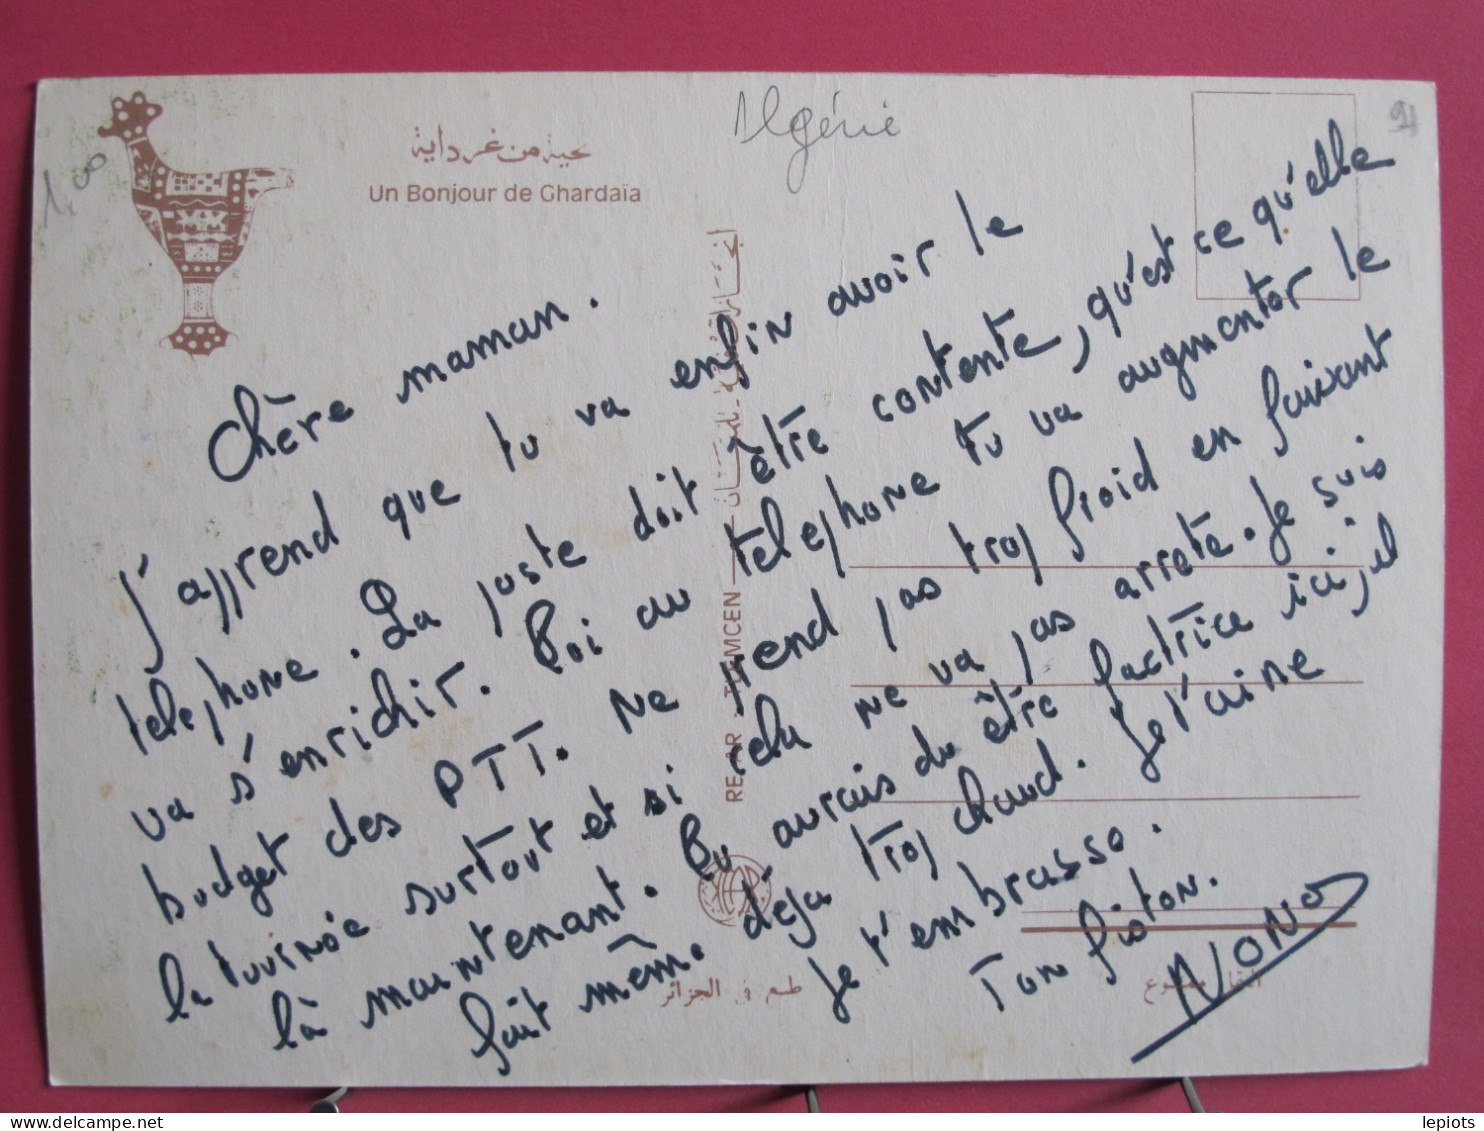 Algérie
94
1,00
تحية من غرداية
Un Bonjour de Ghardaïa
Chère maman.
J'apprend que tu va enfin avoir le
telephone. La poste doit être contente, qu'est ce qu'elle
va s'enrichir. Toi au telephone tu va augmenter le
budget des PTT. Ne prend pas trop froid en faisant
la tournée surtout et si cela ne va pas arrete. Je suis
là maintenant. Tu aurais du être factrice ici, il
fait même déjà trop chaud. Je t'aime
Je t'embrasse.
Ton fiston.
NONO
TLEMCEN
طبع في الجزائر
lepiots